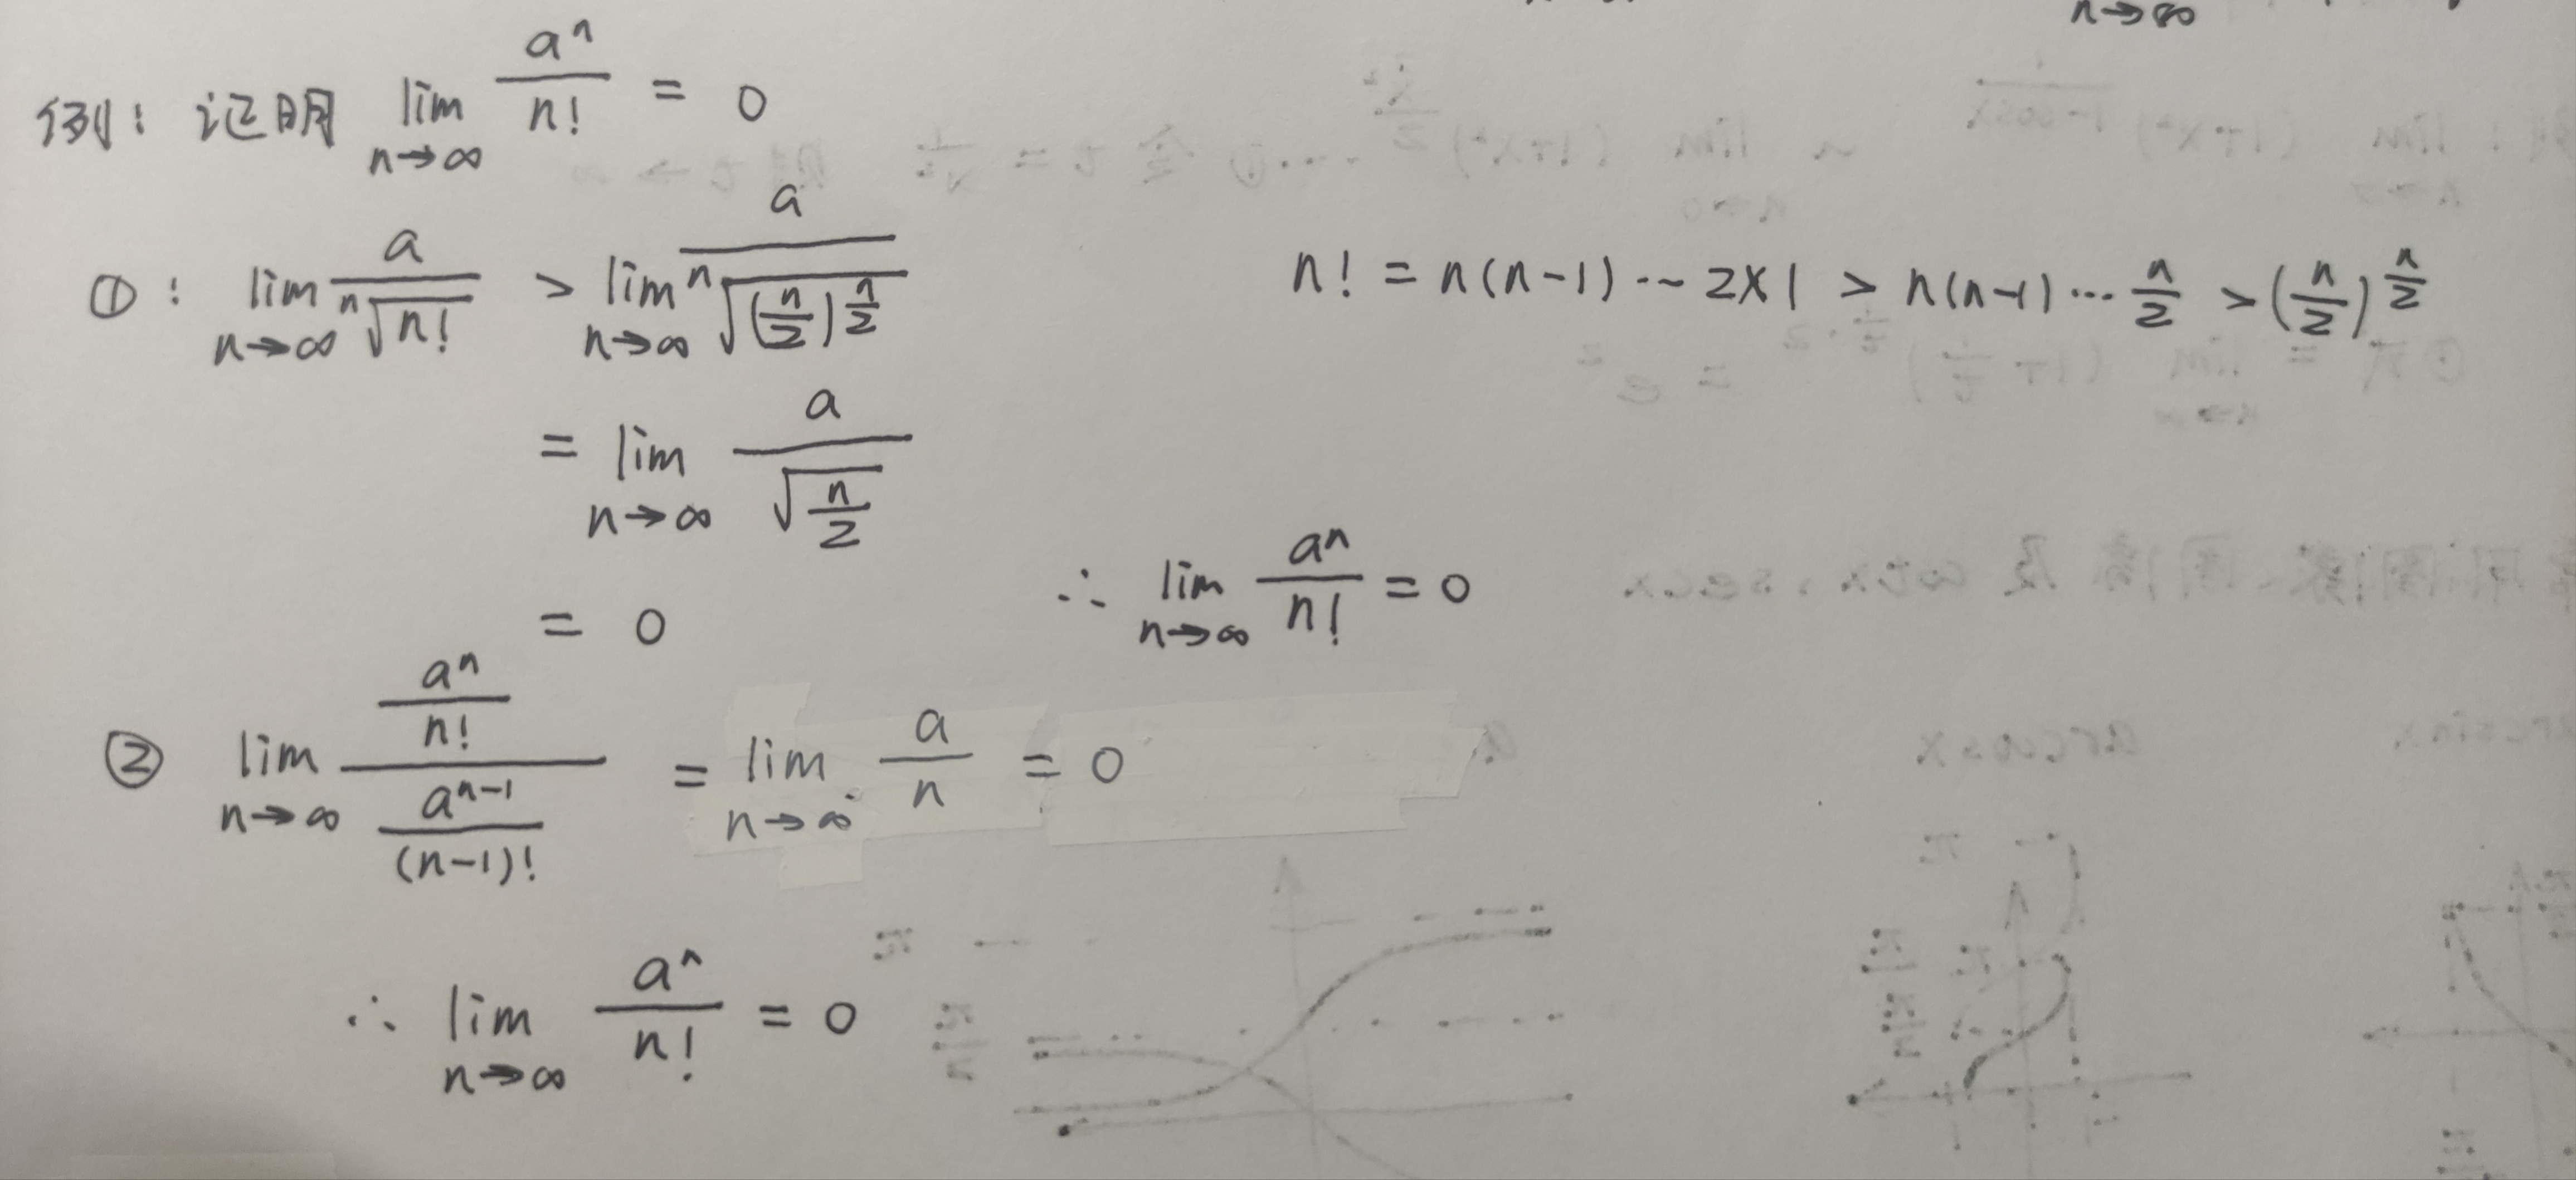 n→∞
例: 证明 lim_{n→∞} a^n/n! = 0
①: lim_{n→∞} a/ⁿ√(n!) > lim_{n→∞} a/ⁿ√((n/2)^{n/2})
n! = n(n-1)···2×1 > n(n-1)···n/2 > (n/2)^{n/2}
= lim_{n→∞} a/√(n/2)
= 0
∴ lim_{n→∞} a^n/n! = 0
② lim_{n→∞} (a^n/n!)/(a^{n-1}/(n-1)!) = lim_{n→∞} a/n = 0
∴ lim_{n→∞} a^n/n! = 0